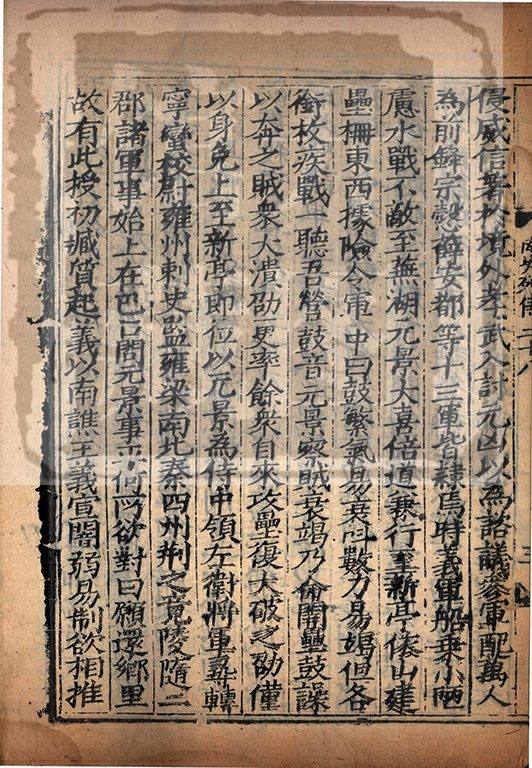 侵威信著於境外孝武入討元凶以為諮議參軍配萬人
為前鋒宗慤薛安都等十三軍皆隸焉時義軍船乗小陋
慮水戰不敵至蕪湖元景大喜倍道兼行至新亭依山建
壘柵東西據險令軍中曰鼓繁氣易衰叫數力易竭但各
銜枚疾戰一聽吾營鼓音元景察賊衰竭乃命開壘鼓譟
以奔之賊衆大潰劭更率餘衆自來攻壘復大破之劭僅
以身免上至新亭即位以元景為侍中領左衛將軍尋轉
寧蠻校尉雍州刺史監雍梁南北秦四州荆之竟陵隨二
郡諸軍事始上在巴口問元景事平何所欲對曰願還鄉里
故有此授初臧質起義以南譙王義宣闇弱易制欲相推